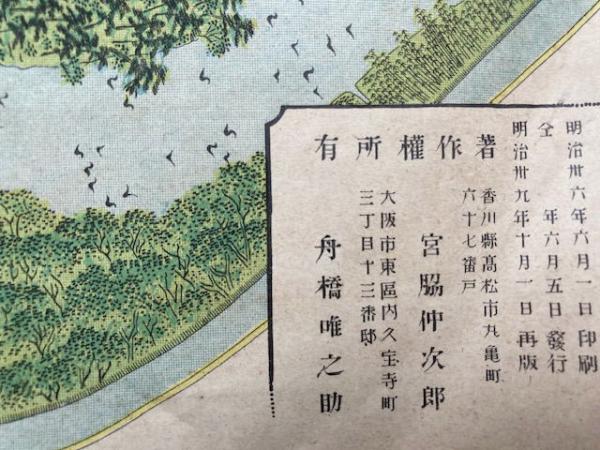 明治卅六年六月一日印刷
仝 年六月五日發行
明治卅九年十月一日再版
著作權所有
香川縣高松市丸亀町
六十七番戸
宮脇仲次郎
大阪市東區内久宝寺町
三丁目十三番邸
舟橋唯之助